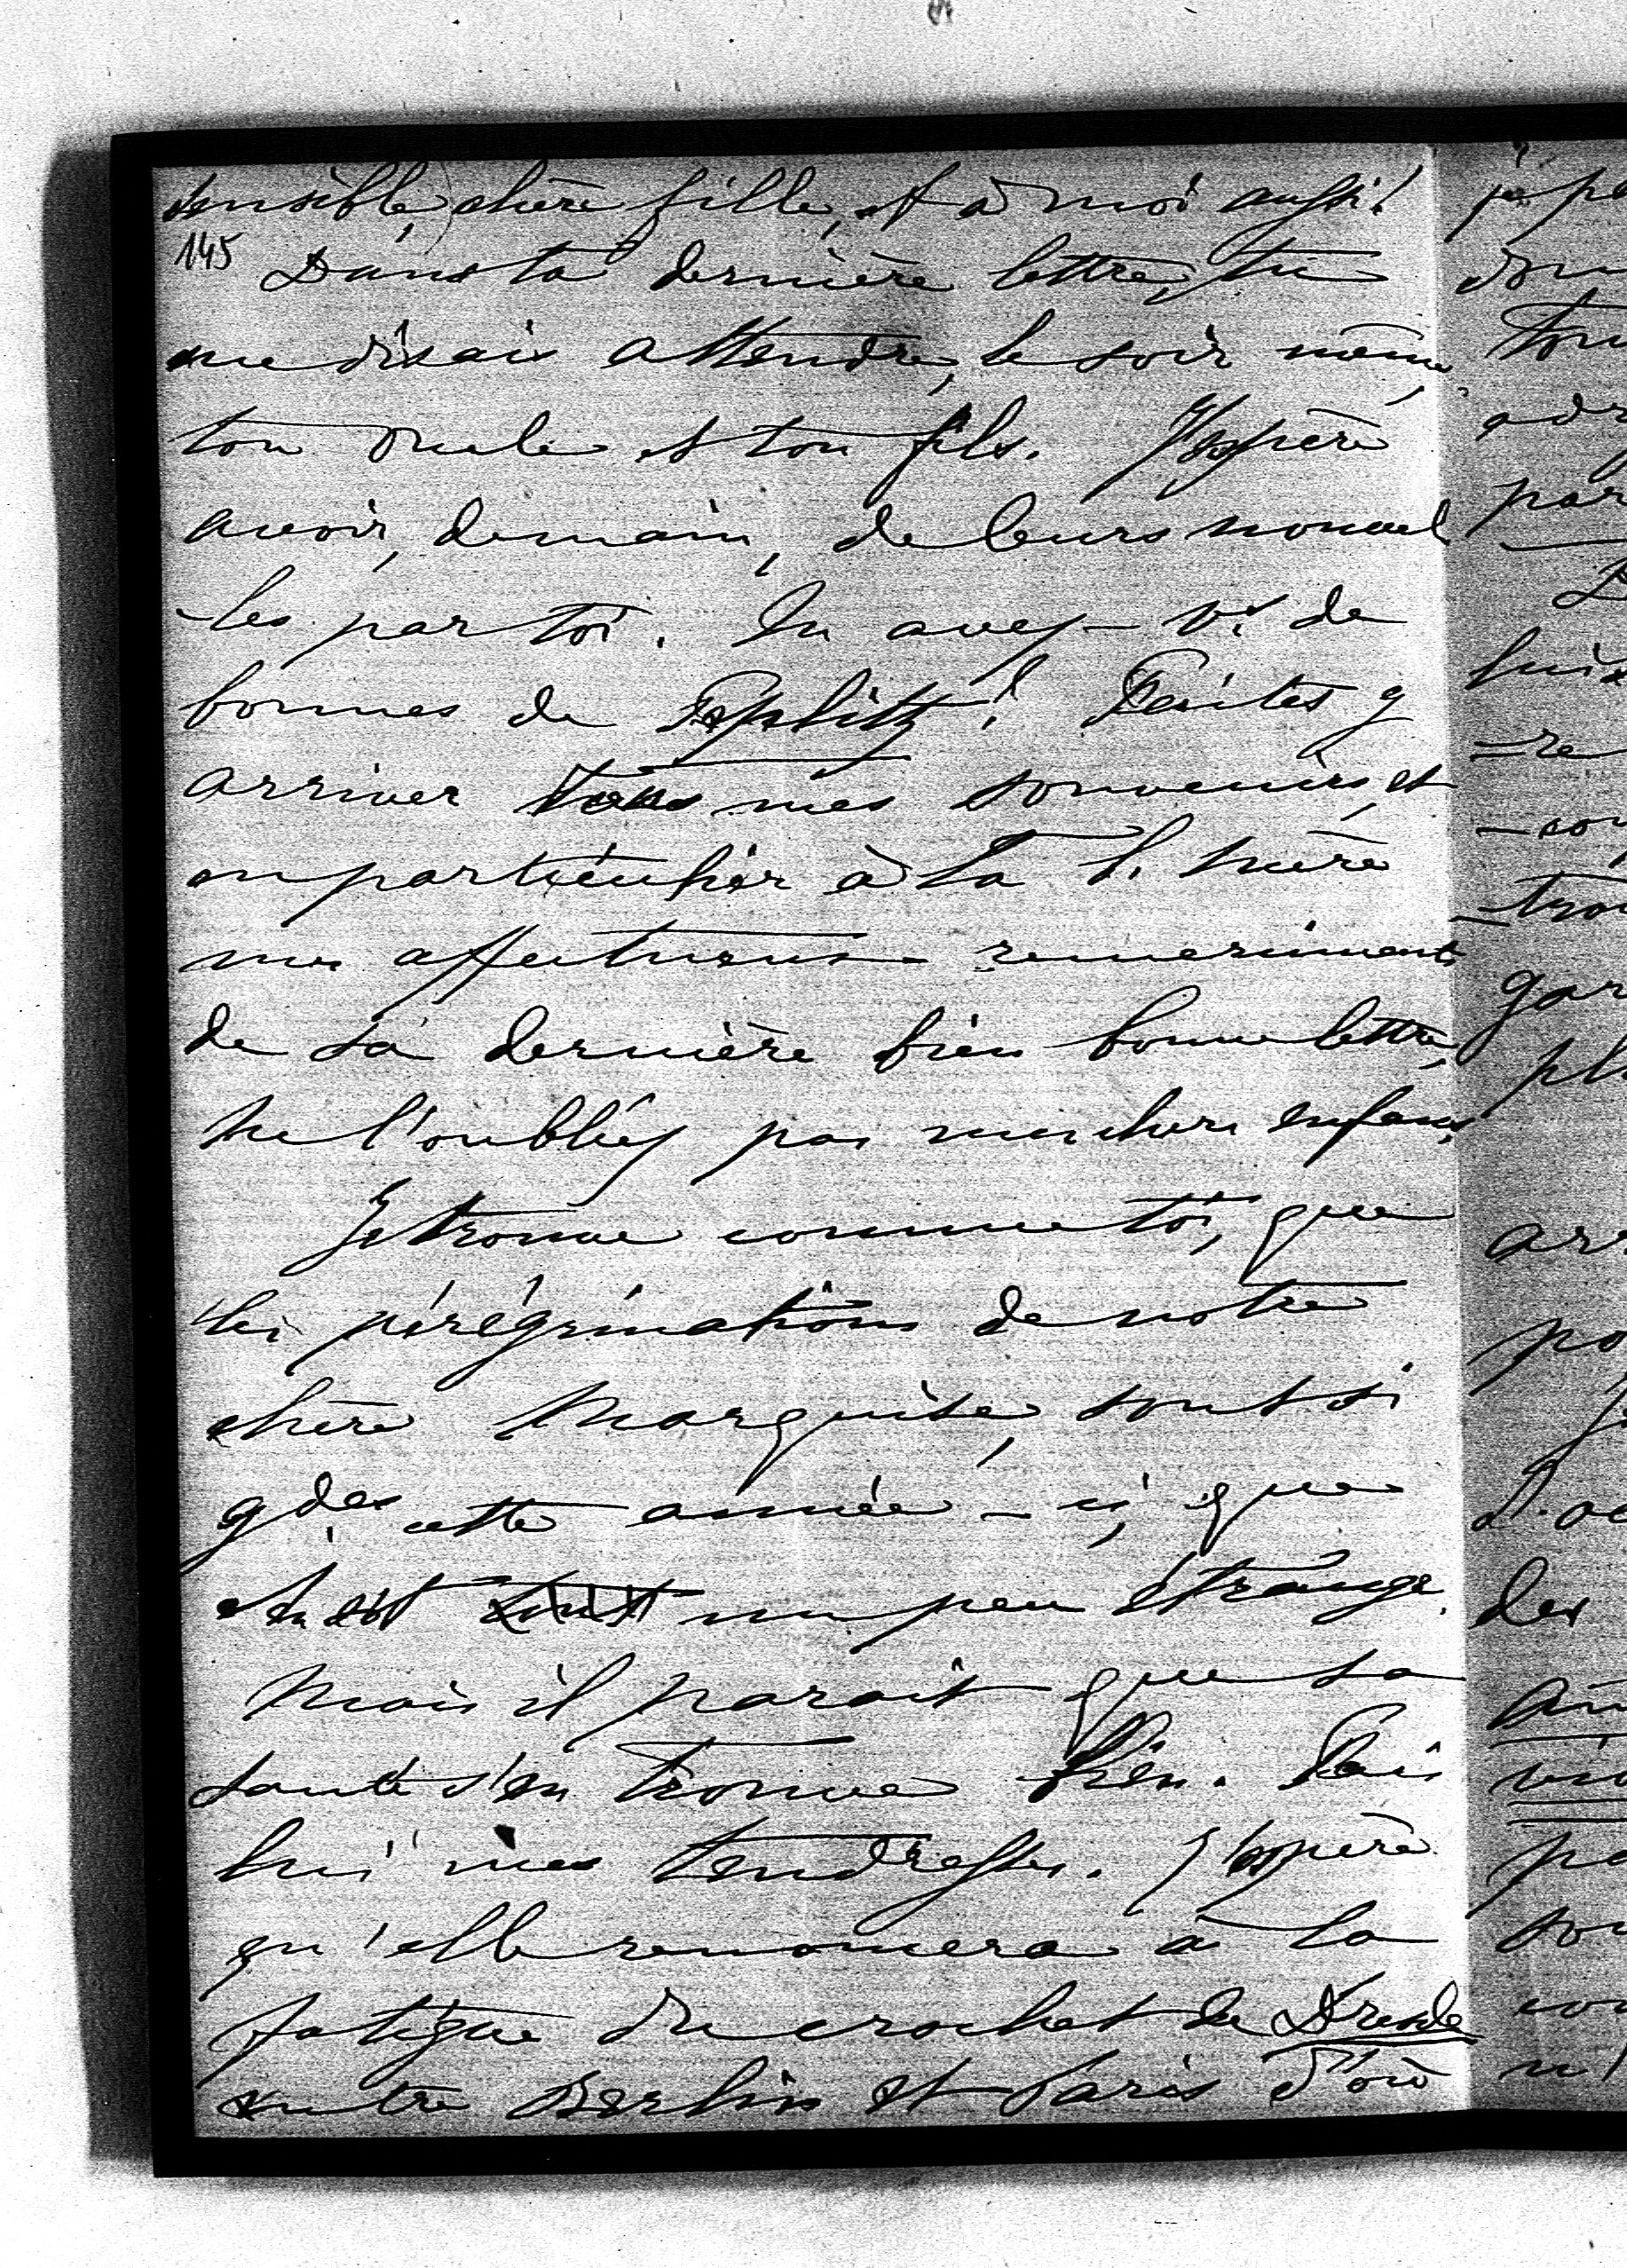 sensible, chère fille, et à moi aussi!
145
Dans ta dernière lettre, tu
me disais attendre, le soir même,
ton oncle et ton fils. J'espère
avoir, demain, de leurs nouvel
-les par toi. En avez-vs de
bonnes de Töplitz? Faites y
arriver tous mes souvenirs, et
en particulier à ta b. mère
mes affectueux remerciments
de sa dernière bien bonne lettre,
ne l'oubliez pas mes chers enfans,
Je trouve comme toi, que
les pérégrinations de notre
chère Marquise, sont si
gdes cette année-ci, que
c'en est un peu étrange.
Mais il parait que sa
santé s'en trouve bien. Dis
lui mes tendresses. J'espère
qu'elle renoncera à la
fatigue du crochet de Dresde
entre Berlin et Paris d'où